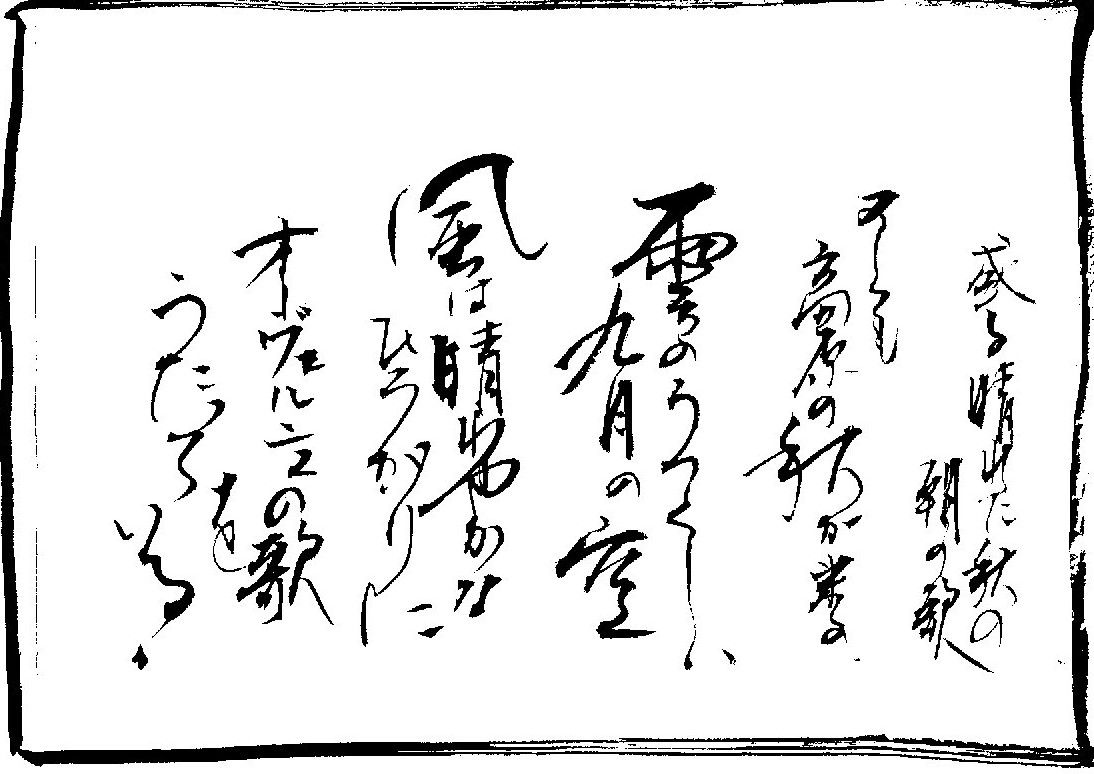 或る晴れた秋の
朝の歌
又しても
高原の秋が来る
雲のうつくしい
九月の空
風は晴れやかな
ひろがりに
オーヴェルニュの歌を
うたっている。